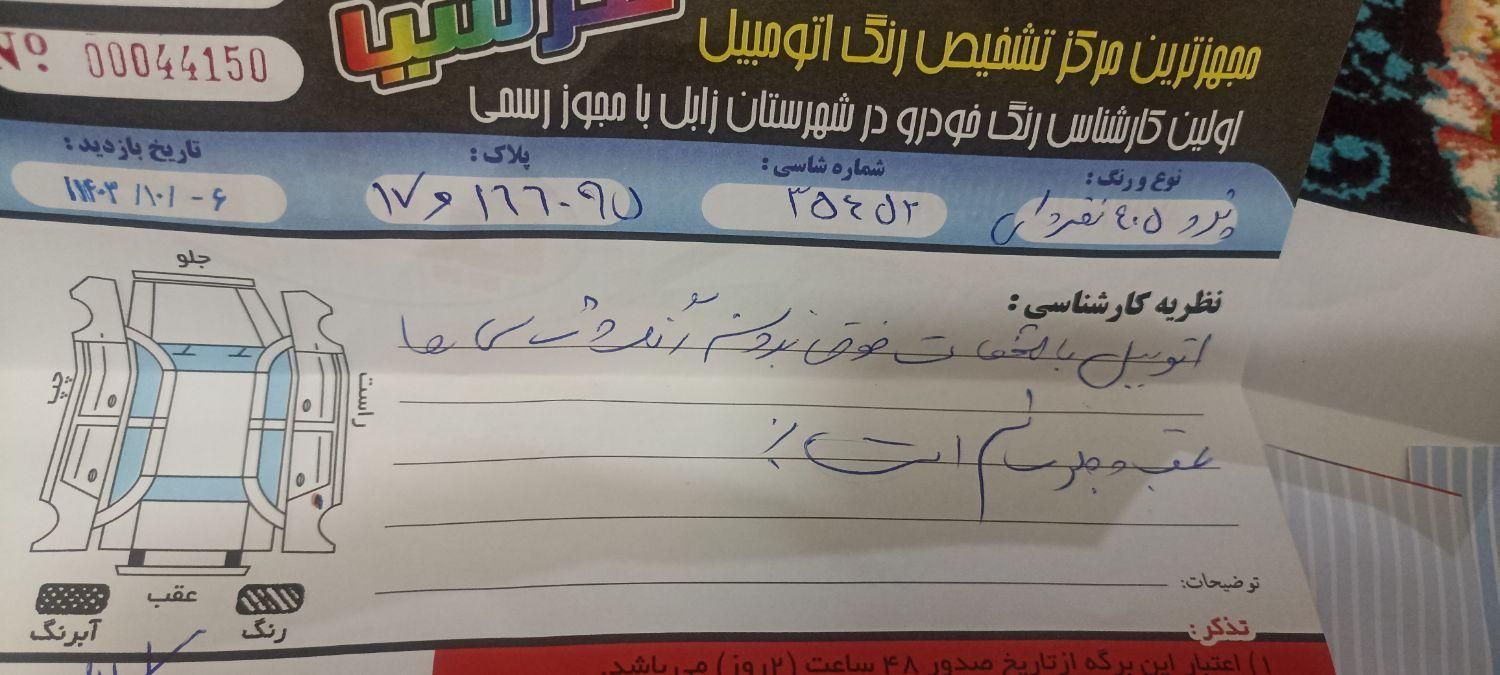 Nº 00044150
مجهزترین مرکز تشخیص رنگ اتومبیل
اولین کارشناس رنگ خودرو در شهرستان زابل با مجوز رسمی
نوع و رنگ: پژو ۴۰۵ نقره‌ای
شماره شاسی: ۳۵۴۵۲
پلاک:
تاریخ بازدید: ۱۴۰۳/۱۰/۰۶
جلو
چپ
راست
عقب
رنگ
آبرنگ
نظریه کارشناسی:
اتومبیل با مشخصات فوق بدون رنگ و شاسی ها
عقب و جلو سالم است
توضیحات:
تذکر:
۱) اعتبار این برگه از تاریخ صدور ۴۸ ساعت (۲ روز) می باشد.